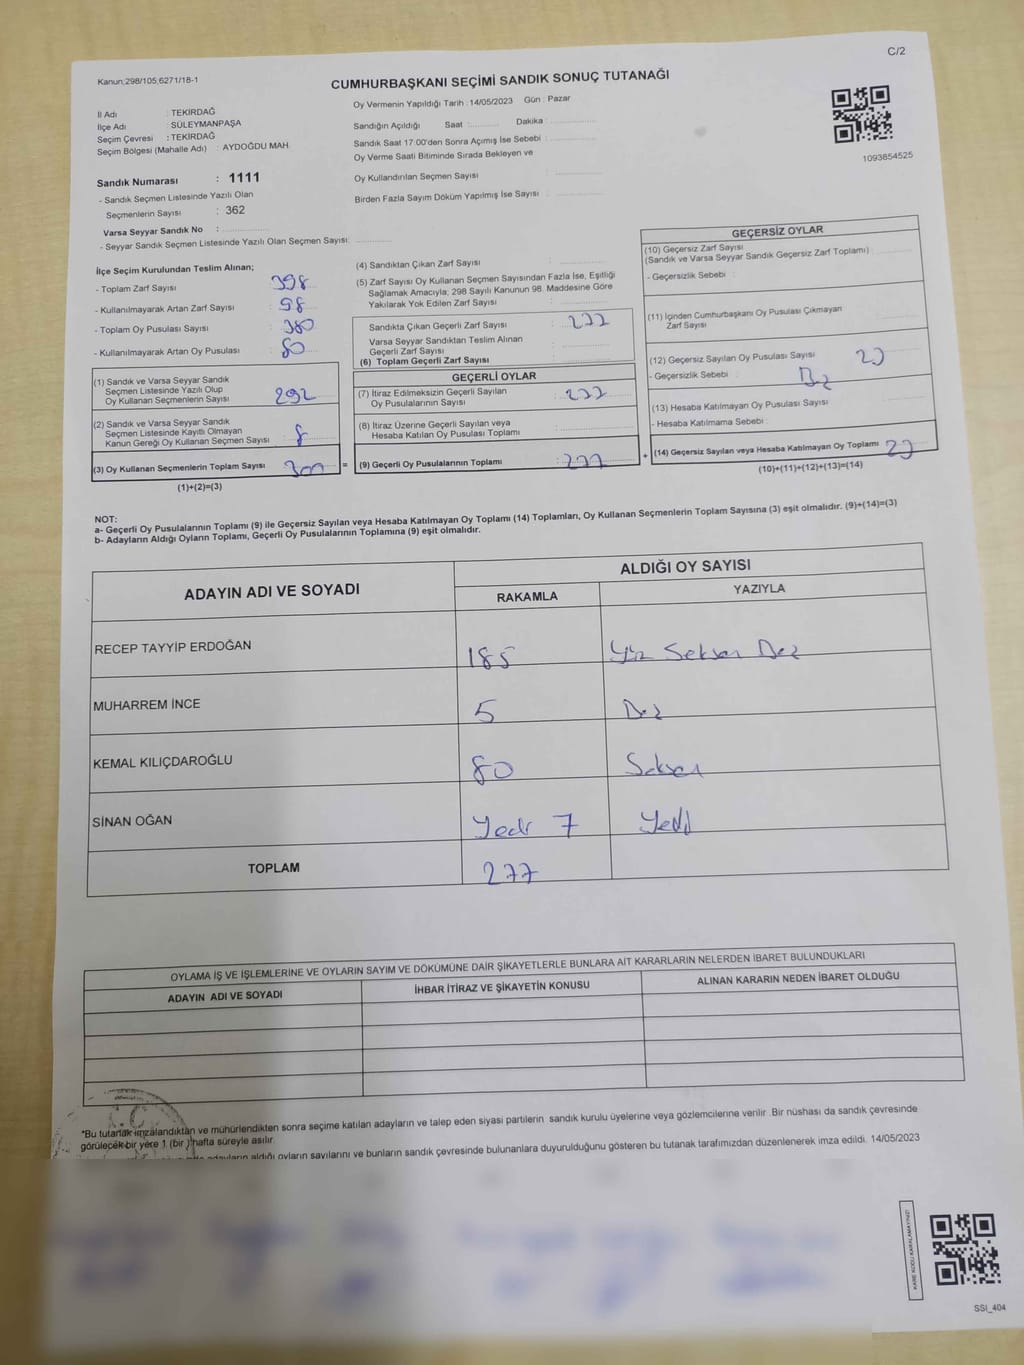 C/2
Kanun;298/105;6271/18-1
CUMHURBAŞKANI SEÇİMİ SANDIK SONUÇ TUTANAĞI
Oy Vermenin Yapıldığı Tarih : 14/05/2023 Gün : Pazar
İl Adı : TEKİRDAĞ
İlçe Adı : SÜLEYMANPAŞA
Seçim Çevresi : TEKİRDAĞ
Seçim Bölgesi (Mahalle Adı) : AYDOĞDU MAH.
Sandığın Açıldığı Saat : Dakika :
Sandık Saat 17:00'den Sonra Açımış İse Sebebi :
Oy Verme Saati Bitiminde Sırada Bekleyen ve
Oy Kullandırılan Seçmen Sayısı :
Birden Fazla Sayım Döküm Yapılmış İse Sayısı :
1093854525
Sandık Numarası : 1111
- Sandık Seçmen Listesinde Yazılı Olan
Seçmenlerin Sayısı : 362
Varsa Seyyar Sandık No :
- Seyyar Sandık Seçmen Listesinde Yazılı Olan Seçmen Sayısı:
İlçe Seçim Kurulundan Teslim Alınan;
- Toplam Zarf Sayısı : 398
- Kullanılmayarak Artan Zarf Sayısı : 98
- Toplam Oy Pusulası Sayısı : 380
- Kullanılmayarak Artan Oy Pusulası : 80
(1) Sandık ve Varsa Seyyar Sandık
Seçmen Listesinde Yazılı Olup
Oy Kullanan Seçmenlerin Sayısı : 292
(2) Sandık ve Varsa Seyyar Sandık
Seçmen Listesinde Kayıtlı Olmayan
Kanun Gereği Oy Kullanan Seçmen Sayısı : 8
(3) Oy Kullanan Seçmenlerin Toplam Sayısı 300 =
(1)+(2)=(3)
(4) Sandıktan Çıkan Zarf Sayısı :
(5) Zarf Sayısı Oy Kullanan Seçmen Sayısından Fazla İse, Eşitliği
Sağlamak Amacıyla; 298 Sayılı Kanunun 98. Maddesine Göre
Yakılarak Yok Edilen Zarf Sayısı :
Sandıkta Çıkan Geçerli Zarf Sayısı : 277
Varsa Seyyar Sandıktan Teslim Alınan
Geçerli Zarf Sayısı :
(6) Toplam Geçerli Zarf Sayısı :
GEÇERLİ OYLAR
(7) İtiraz Edilmeksizin Geçerli Sayılan
Oy Pusulalarının Sayısı : 277
(8) İtiraz Üzerine Geçerli Sayılan veya
Hesaba Katılan Oy Pusulası Toplamı :
(9) Geçerli Oy Pusulalarının Toplamı : 277 +
GEÇERSİZ OYLAR
(10) Geçersiz Zarf Sayısı
(Sandık ve Varsa Seyyar Sandık Geçersiz Zarf Toplamı) :
- Geçersizlik Sebebi :
(11) İçinden Cumhurbaşkanı Oy Pusulası Çıkmayan
Zarf Sayısı :
(12) Geçersiz Sayılan Oy Pusulası Sayısı : 23
- Geçersizlik Sebebi :
(13) Hesaba Katılmayan Oy Pusulası Sayısı :
- Hesaba Katılmama Sebebi :
(14) Geçersiz Sayılan veya Hesaba Katılmayan Oy Toplamı : 23
(10)+(11)+(12)+(13)=(14)
NOT:
a- Geçerli Oy Pusulalarının Toplamı (9) ile Geçersiz Sayılan veya Hesaba Katılmayan Oy Toplamı (14) Toplamları, Oy Kullanan Seçmenlerin Toplam Sayısına (3) eşit olmalıdır. (9)+(14)=(3)
b- Adayların Aldığı Oyların Toplamı, Geçerli Oy Pusulalarının Toplamına (9) eşit olmalıdır.
ADAYIN ADI VE SOYADI ALDIĞI OY SAYISI
RAKAMLA YAZIYLA
RECEP TAYYİP ERDOĞAN 185 Yüz Seksen Beş
MUHARREM İNCE 5 Beş
KEMAL KILIÇDAROĞLU 80 Seksen
SİNAN OĞAN Yedi 7 Yedi
TOPLAM 277
OYLAMA İŞ VE İŞLEMLERİNE VE OYLARIN SAYIM VE DÖKÜMÜNE DAİR ŞİKAYETLERLE BUNLARA AİT KARARLARIN NELERDEN İBARET BULUNDUKLARI
ADAYIN ADI VE SOYADI İHBAR İTİRAZ VE ŞİKAYETİN KONUSU ALINAN KARARIN NEDEN İBARET OLDUĞU
*Bu tutanak imzalandıktan ve mühürlendikten sonra seçime katılan adayların ve talep eden siyasi partilerin sandık kurulu üyelerine veya gözlemcilerine verilir. Bir nüshası da sandık çevresinde
görülecek bir yere 1 (bir) hafta süreyle asılır.
adayların aldığı oyların sayılarını ve bunların sandık çevresinde bulunanlara duyurulduğunu gösteren bu tutanak tarafımızdan düzenlenerek imza edildi. 14/05/2023
KARE KODU KARALAMAYINIZ!
SSI_404